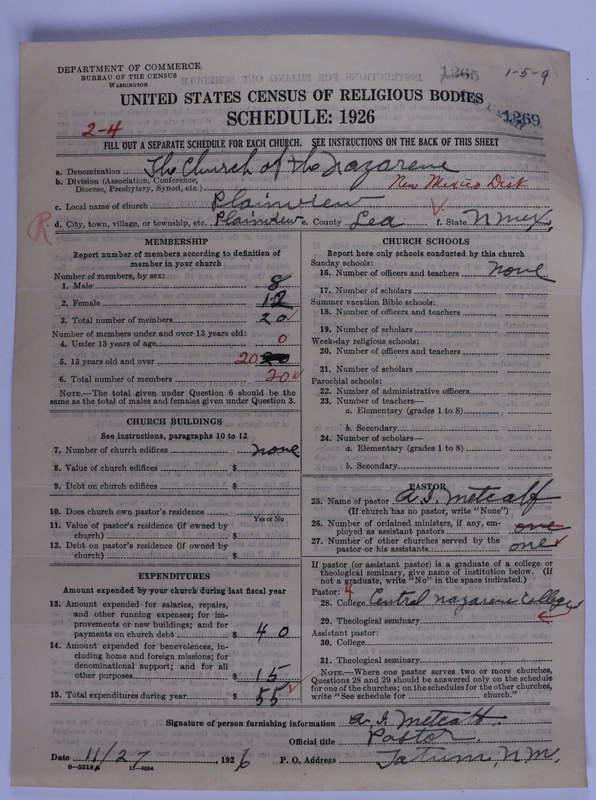 DEPARTMENT OF COMMERCE
BUREAU OF THE CENSUS
WASHINGTON
1265
1-5-9
1269
UNITED STATES CENSUS OF RELIGIOUS BODIES
SCHEDULE: 1926
2-4
FILL OUT A SEPARATE SCHEDULE FOR EACH CHURCH. SEE INSTRUCTIONS ON THE BACK OF THIS SHEET
a. Denomination The Church of the Nazarene
b. Division (Association, Conference, Diocese, Presbytery, Synod, etc.) New Mexico Dist
c. Local name of church Plainview
R
d. City, town, village, or township, etc. Plainview e. County Lea f. State N Mex.
MEMBERSHIP
Report number of members according to definition of
member in your church
Number of members, by sex:
1. Male 8
2. Female 12
3. Total number of members 20
Number of members under and over 13 years old:
4. Under 13 years of age 0
5. 13 years old and over 20
6. Total number of members 20
NOTE.—The total given under Question 6 should be
same as the total of males and females given under Question 3.
CHURCH BUILDINGS
See instructions, paragraphs 10 to 12
7. Number of church edifices none
8. Value of church edifices $
9. Debt on church edifices $
10. Does church own pastor's residence
Yes or No
11. Value of pastor's residence (if owned by
church) $
12. Debt on pastor's residence (if owned by
church) $
EXPENDITURES
Amount expended by your church during last fiscal year
13. Amount expended for salaries, repairs,
and other running expenses; for im-
provements or new buildings; and for
payments on church debt $ 40
14. Amount expended for benevolences, in-
cluding home and foreign missions; for
denominational support; and for all
other purposes $ 15
15. Total expenditures during year $ 55
CHURCH SCHOOLS
Report here only schools conducted by this church
Sunday schools:
16. Number of officers and teachers none
17. Number of scholars
Summer vacation Bible schools:
18. Number of officers and teachers
19. Number of scholars
Week-day religious schools:
20. Number of officers and teachers
21. Number of scholars
Parochial schools:
22. Number of administrative officers
23. Number of teachers—
a. Elementary (grades 1 to 8)
b. Secondary
24. Number of scholars—
a. Elementary (grades 1 to 8)
b. Secondary
PASTOR
25. Name of pastor A. I. Metcalf
(If church has no pastor, write "None")
26. Number of ordained ministers, if any, em-
ployed as assistant pastors one
27. Number of other churches served by the
pastor or his assistants one
If pastor (or assistant pastor) is a graduate of a college or
theological seminary, give name of institution below. (If
not a graduate, write "No" in the space indicated.)
Pastor: 4
28. College Central Nazarene College
29. Theological seminary
Assistant pastor:
30. College
31. Theological seminary
NOTE.—Where one pastor serves two or more churches,
Questions 28 and 29 should be answered only on the schedule
for one of the churches; on the schedules for the other churches,
write "See schedule for church."
Signature of person furnishing information A. I. Metcalf.
Official title Pastor.
Date 11/27, 1926 P. O. Address Tatum, N.M.
8-5518a 11-9034